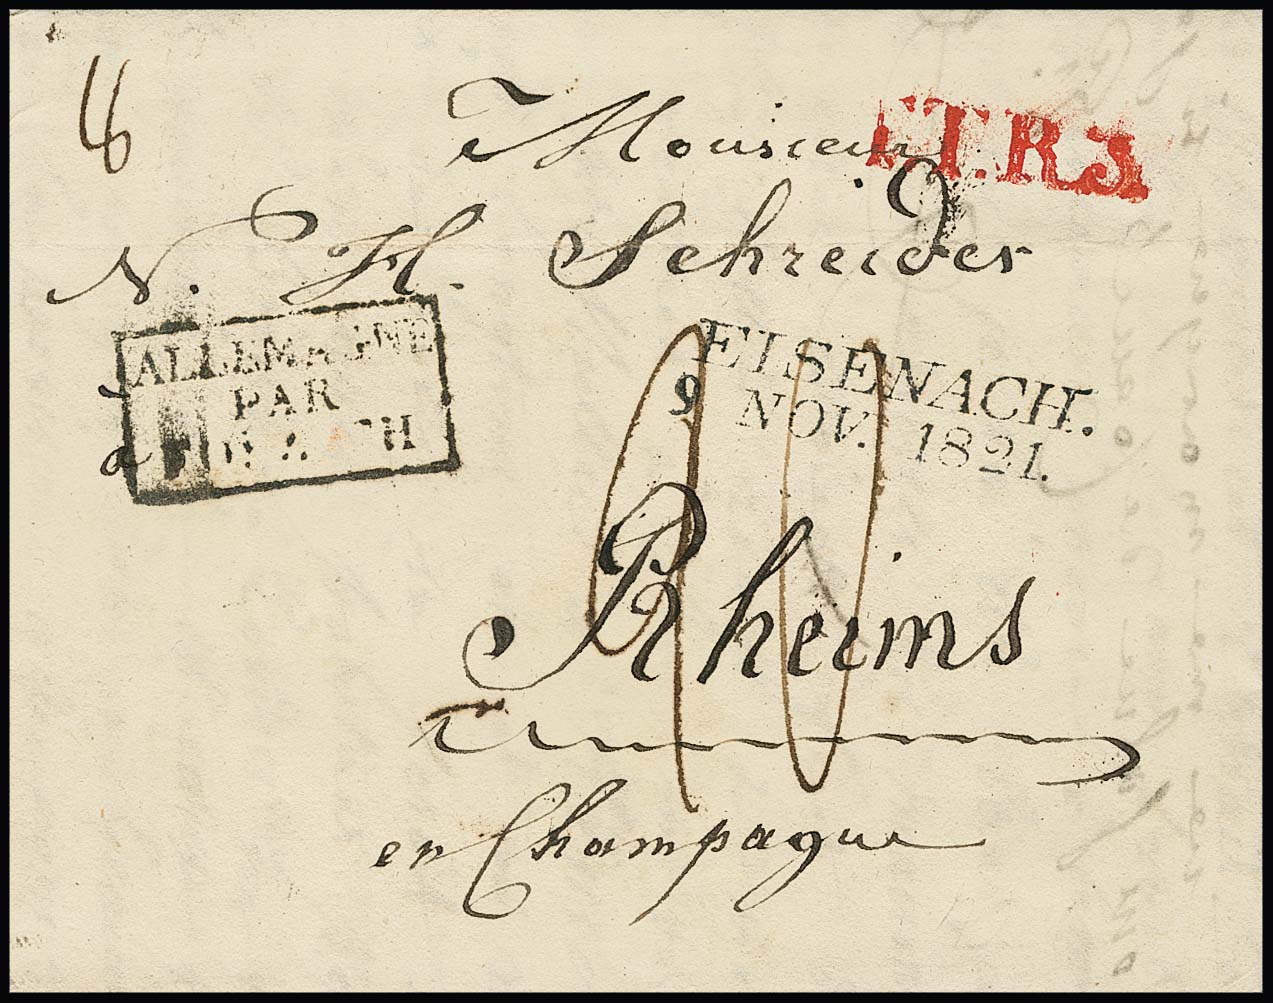 Monsieur
T.R.3.
N. H. Schreider
ALLEMAGNE
PAR
à
EISENACH.
9 NOV. 1821.
Rheims
en Champagne